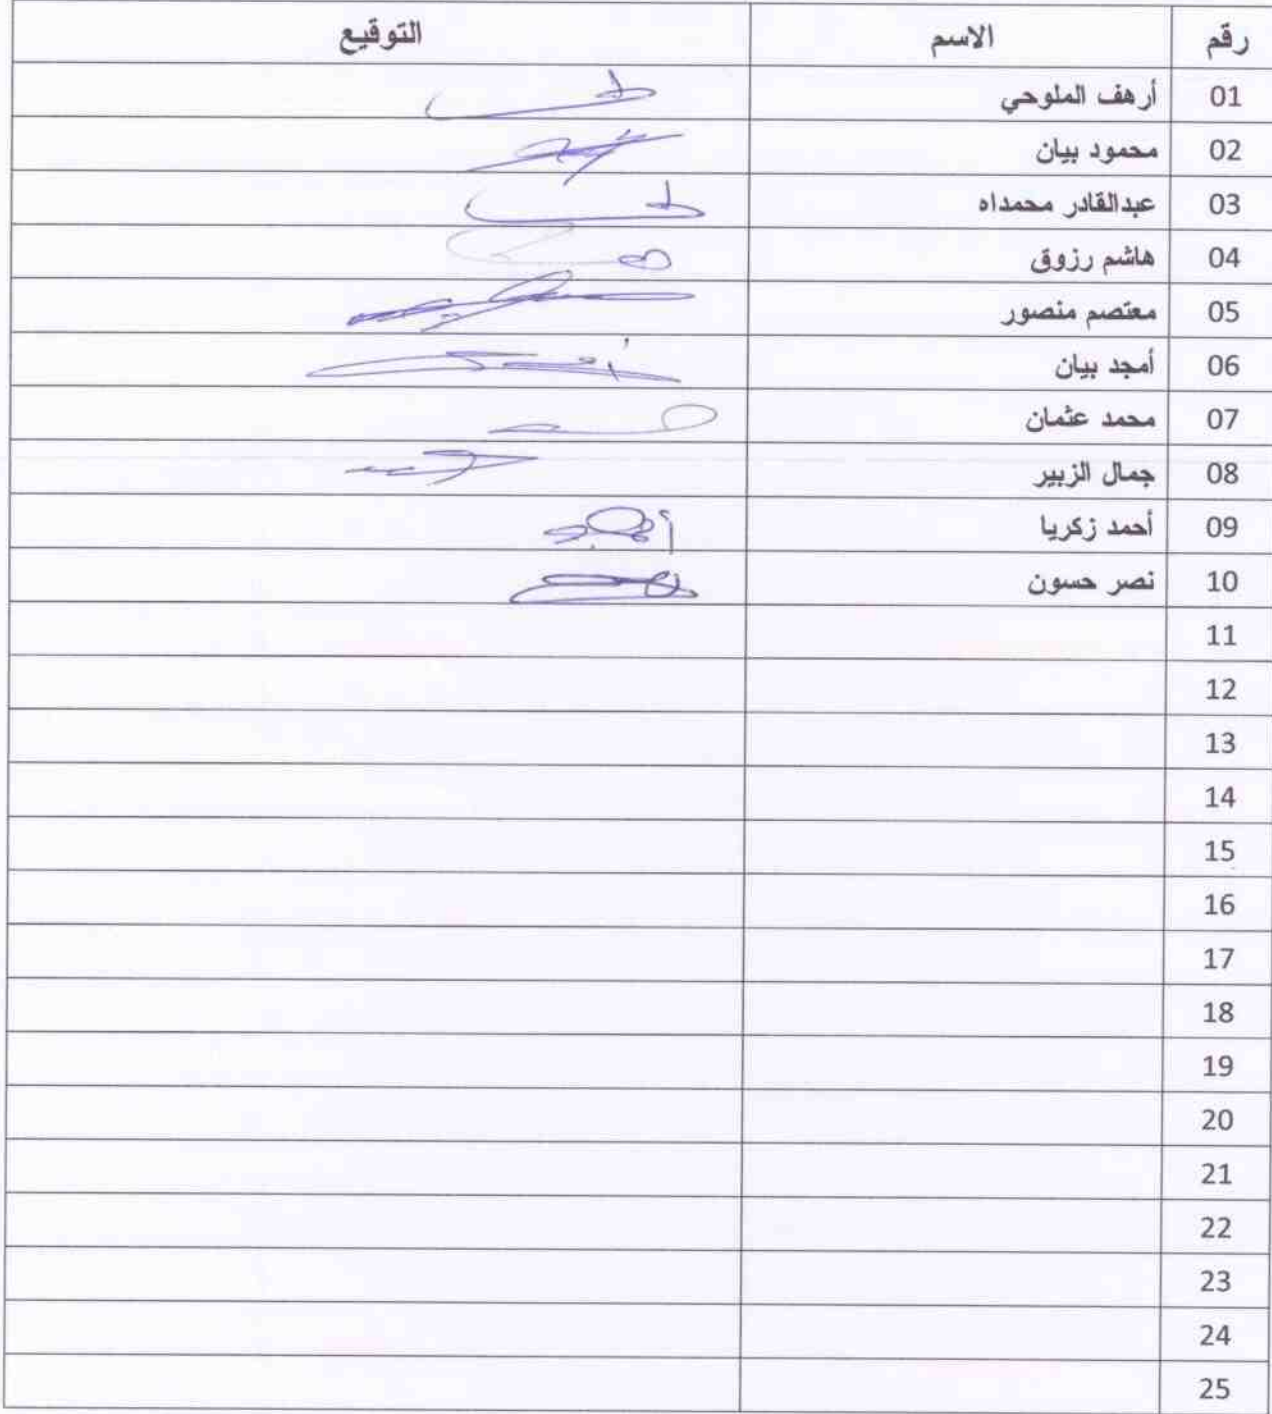 رقم الاسم التوقيع
01 أرهف الملوحي
02 محمود بيان
03 عبدالقادر محمداه
04 هاشم رزوق
05 معتصم منصور
06 أمجد بيان
07 محمد عثمان
08 جمال الزبير
09 أحمد زكريا
10 نصر حسون
11
12
13
14
15
16
17
18
19
20
21
22
23
24
25